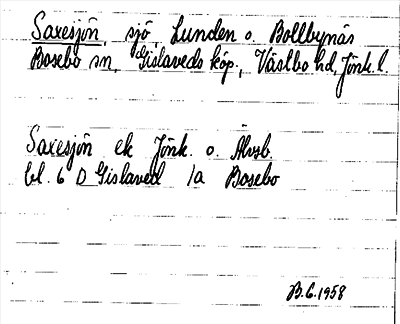 Saxesjön, sjö, Lunden o. Bollbynäs
Bosebo sn, Gislaveds köp., Västbo hd, Jönk. l.
Saxesjön ek Jönk. o. Älvsb.
bl. 6 D Gislaved 1a Bosebo
B.C. 1958